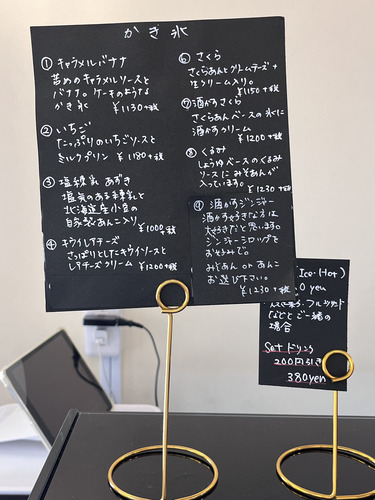 かき氷
① キャラメルバナナ
苦めのキャラメルソースと
バナナ。ケーキのような
かき氷 ¥1130+税
② いちご
たっぷりのいちごソースと
ミルクプリン ¥1180+税
③ 塩練乳 あずき
塩気のある練乳と
北海道生小豆の
自家製あんこ入り ¥1000+税
④ キウイレアチーズ
さっぱりとしたキウイソースと
レアチーズクリーム ¥1200+税
⑥ さくら
さくらあんとクリームチーズ+
生クリーム入り。
¥1150+税
⑦ 酒かすさくら
さくらあんベースの氷に
酒かすクリーム
¥1200+税
⑧ くるみ
しょうゆベースのくるみ
ソースにみそあんが
入っています。
¥1230+税
⑨ 酒かすジンジャー
酒かす好きな方は
大好きだと思います。
ジンジャーシロップを
お好みで。
みそあん or あんこ
お選び下さい。
¥1230+税
(Ice・Hot)
0 yen
などとご一緒の
場合
Set ドリンク
200円引き
380yen